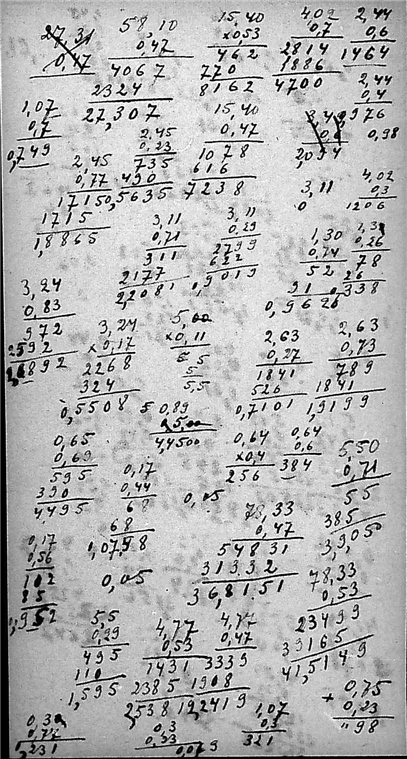 58,10
0,47
4067
2324
27,307
15,40
×0,53
462
770
8162
4,02
0,7
2814
1886
4700
2,44
0,6
1464
2,44
0,4
976
0,98
1,07
0,7
0,749
2,45
0,77
1715
1715
1,8865
2,45
0,23
735
490
0,5635
15,40
0,47
1078
616
7238
3,11
0
4,02
0,3
1206
3,11
0,71
311
2177
2,2081
3,11
0,29
2799
622
0,9019
1,30
0,74
52
91
0,962
1,3
0,26
78
26
0,338
3,24
0,83
972
2592
2,6892
3,24
×0,17
2268
324
0,5508
5,00
×0,11
5 5
5
5,5
2,63
0,27
1841
526
0,7101
2,63
0,73
789
1841
1,9199
0,89
5,00
4,4500
0,65
0,69
595
390
4495
0,17
0,44
68
68
0,0748
0,05
0,64
×0,4
256
0,64
0,6
384
5,50
0,71
55
385
3,9050
0,17
0,56
102
85
0,952
0,05
78,33
0,47
54831
31332
36,8151
78,33
0,53
23499
39165
41,5149
5,5
0,29
495
110
1,595
4,77
0,53
1431
2385
2,5381
4,77
0,47
3339
1908
2,2419
1,07
0,3
321
+ 0,75
0,23
98
0,3
0,77
231
0,3
0,23
0,079